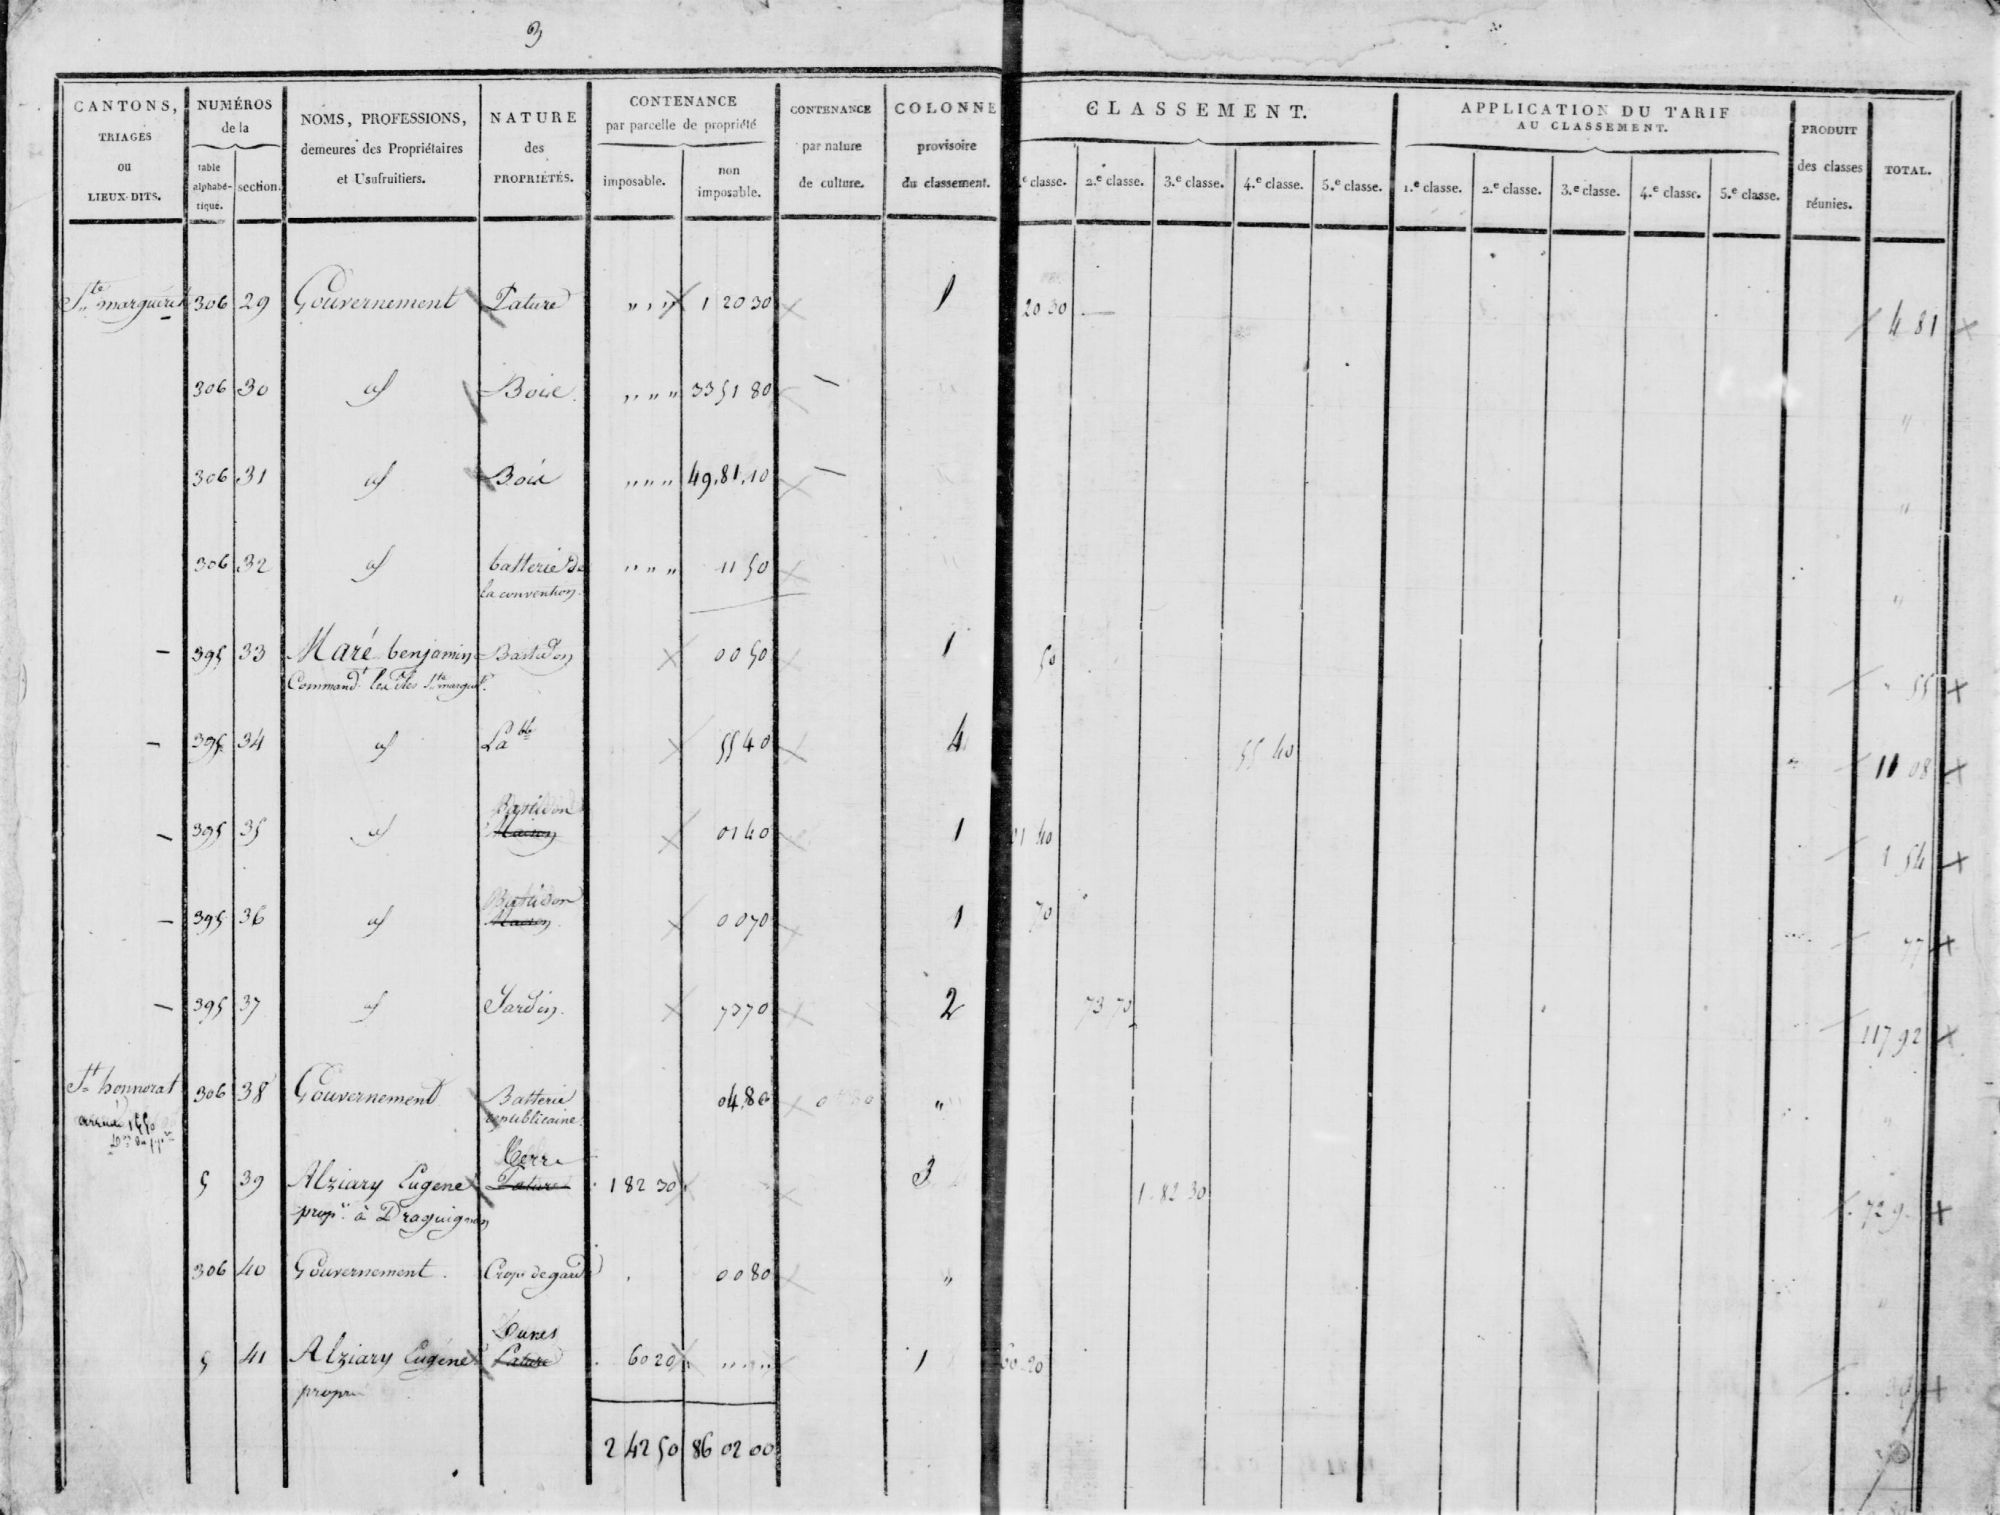 3
CANTONS,
TRIAGES
ou
LIEUX-DITS.
NUMÉROS
de la
table
alphabé-
tique.
section.
NOMS, PROFESSIONS,
demeures des Propriétaires
et Usufruitiers.
NATURE
des
PROPRIÉTÉS.
CONTENANCE
par parcelle de propriété
imposable.
non
imposable.
CONTENANCE
par nature
de culture.
COLONNE
provisoire
du classement.
CLASSEMENT.
.e classe. 2.e classe. 3.e classe. 4.e classe. 5.e classe.
APPLICATION DU TARIF
AU CLASSEMENT.
1.e classe. 2.e classe. 3.e classe. 4.e classe. 5.e classe.
PRODUIT
des classes
réunies.
TOTAL.
Ste marguerite 306 29 Gouvernement Pature " " " 1 20 30 1 20 30 4 81
306 30 id Bois " " " 33 51 80 — "
306 31 id Bois " " " 49,81,10 — "
306 32 id batterie de " " " 11 50 "
la convention.
— 395 33 Maré benjamin Bastidon 00 50 1 50 55
Command.t les iles Ste marguite.
— 395 34 id Labble 55 40 4 55 40 11 08
— 395 35 id Bastidon 01 40 1 01 40 1 54
Maison
— 395 36 id Bastidon 00 70 1 70 77
Maison
— 395 37 id Jardin. 73 70 2 73 70 117 92
St honnorat 306 38 Gouvernement Batterie 04,80 04 80 "
republicaine.
5 39 Alziary Eugene Terre 1 82 30 3 1.82 30 7 29
Pature
propre. à Draguignan
306 40 Gouvernement. Corps de garde 00 80 "
5 41 Alziary Eugéne Dunes 60 20 " " " 1 60 20
Pature
propre
2 42 50 86 02 00